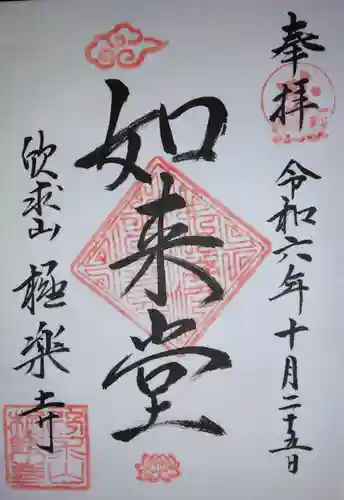 奉拝
令和六年十月二十五日
如来堂
欣求山
極楽寺